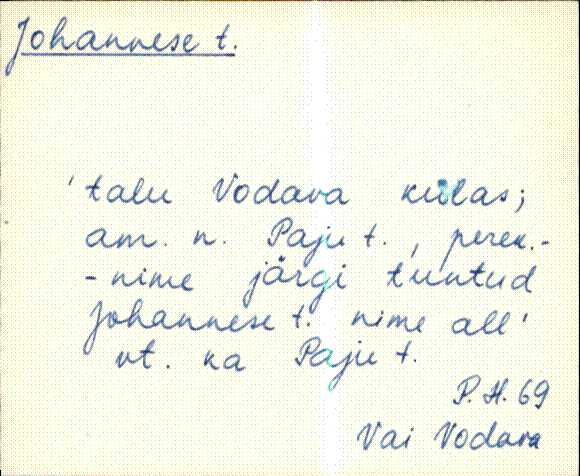 Johannese t.
'talu Vodava külas;
am. n. Paju t., perek.-
-nime järgi tuntud
Johannese t. nime all'
vt. ka Paju t.
P.H. 69
Vai Vodava